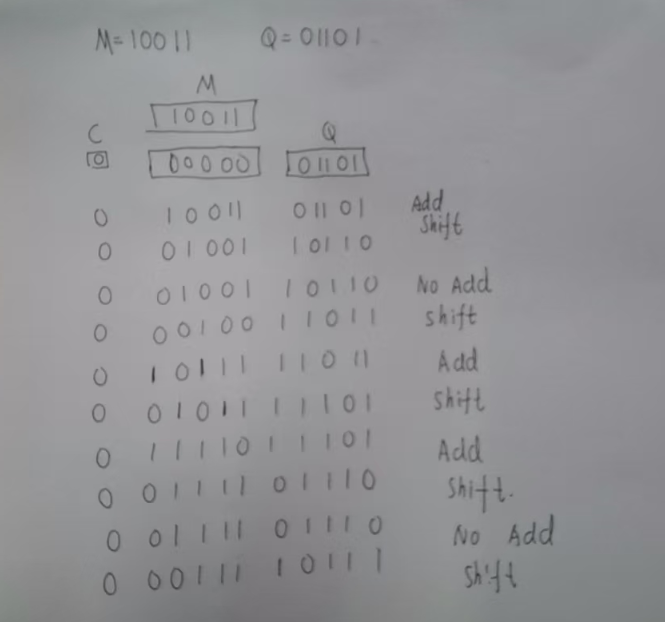 M=10011 Q=01101
M
10011
C Q
0 00000 01101
0 10011 01101 Add
Shift
0 01001 10110
0 01001 10110 No Add
0 00100 11011 shift
0 10111 11011 Add
0 01011 11101 Shift
0 11110 11101 Add
0 01111 01110 Shift.
0 01111 01110 No Add
0 00111 10111 Shift